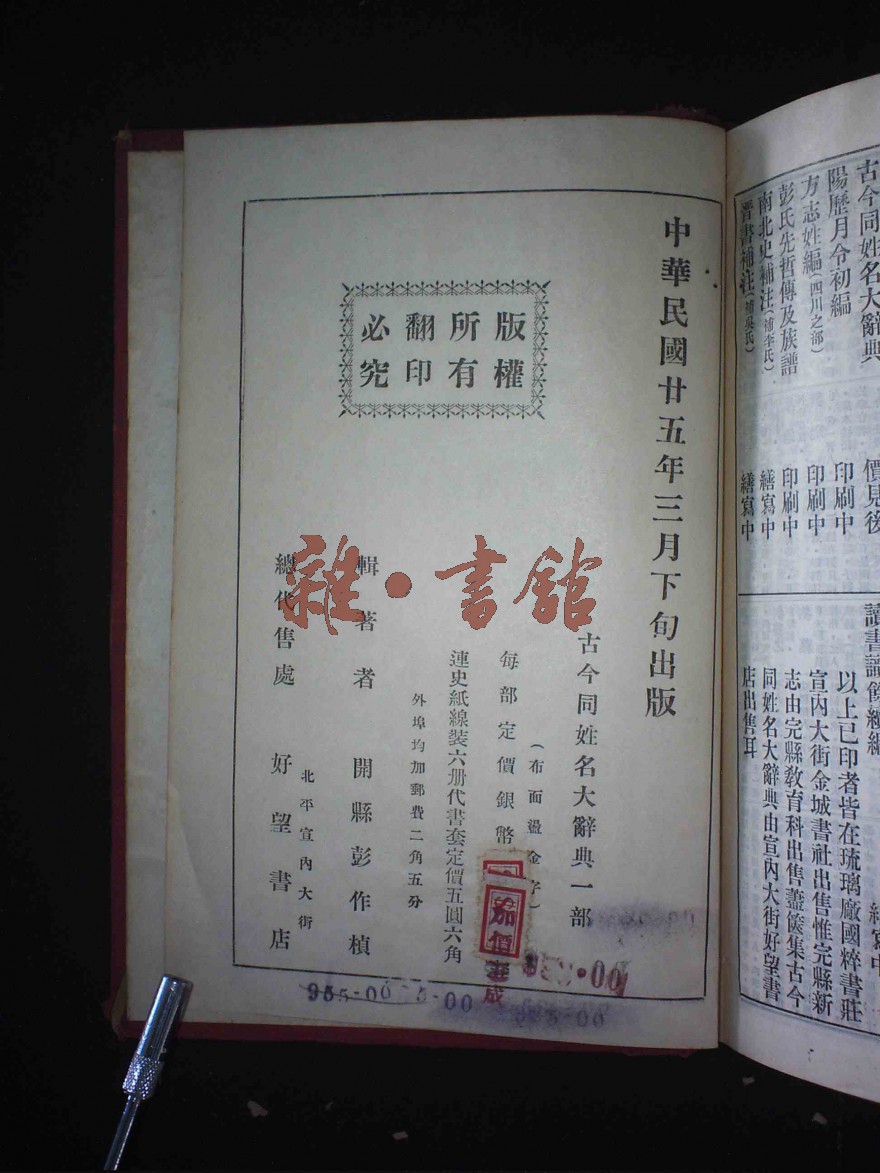 中華民國廿五年三月下旬出版
版權
所有
翻印
必究
古今同姓名大辭典一部
(布面燙金字)
每部定價銀幣
連史紙線裝六册代書套定價五圓六角
外埠均加郵費二角五分
輯著者 開縣彭作楨
北平宣內大街
總代售處 好望書店
雜·書館
加價
成
955-00
-00
00
古今同姓名大辭典 價見後
陽歷月令初編 印刷中
方志姓編(四川之部) 印刷中
彭氏先哲傳及族譜 印刷中
南北史補注(補李氏) 繕寫中
晉書補注(補吳氏) 繕寫中
讀書識 繕寫中
以上已印者皆在琉璃廠國粹書莊
宣內大街金城書社出售惟完縣新
志由完縣敎育科出售藎篋集古今
同姓名大辭典由宣內大街好望書
店出售耳